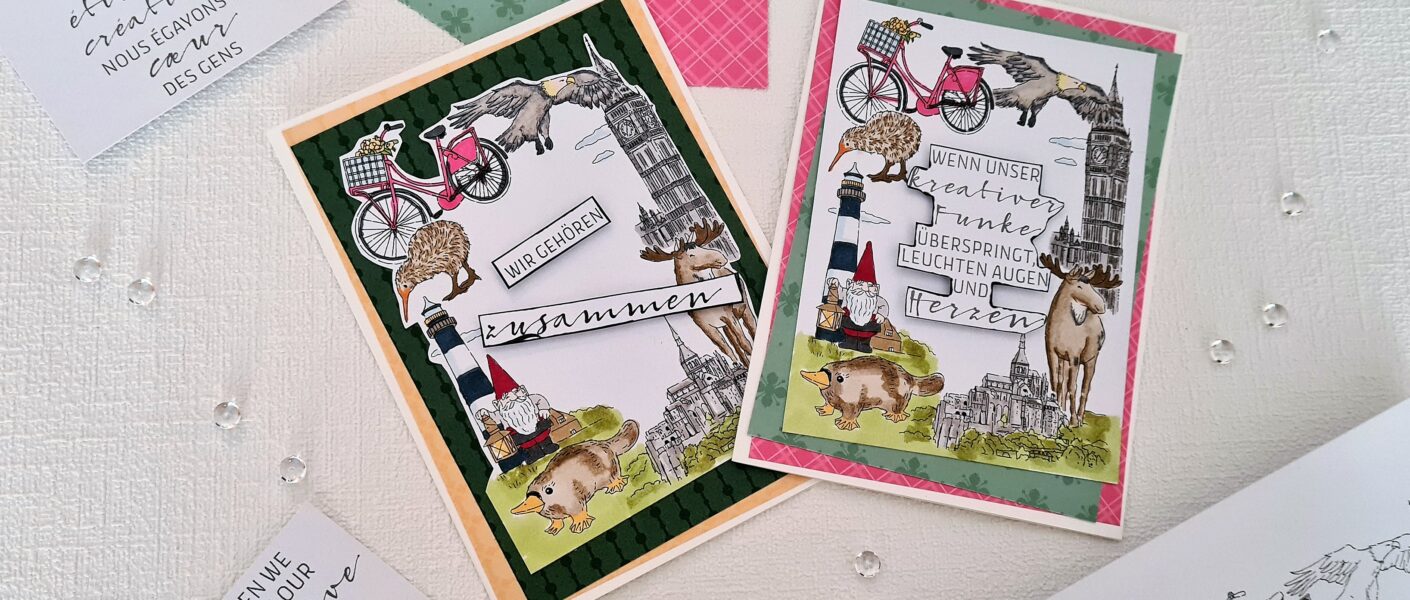 créativ
NOUS ÉGAYONS
cœur
DES GENS
WIR GEHÖREN
zusammen
WENN UNSER
kreativer
Funke
ÜBERSPRINGT,
LEUCHTEN AUGEN
UND
Herzen
EN WE
OUR
ve